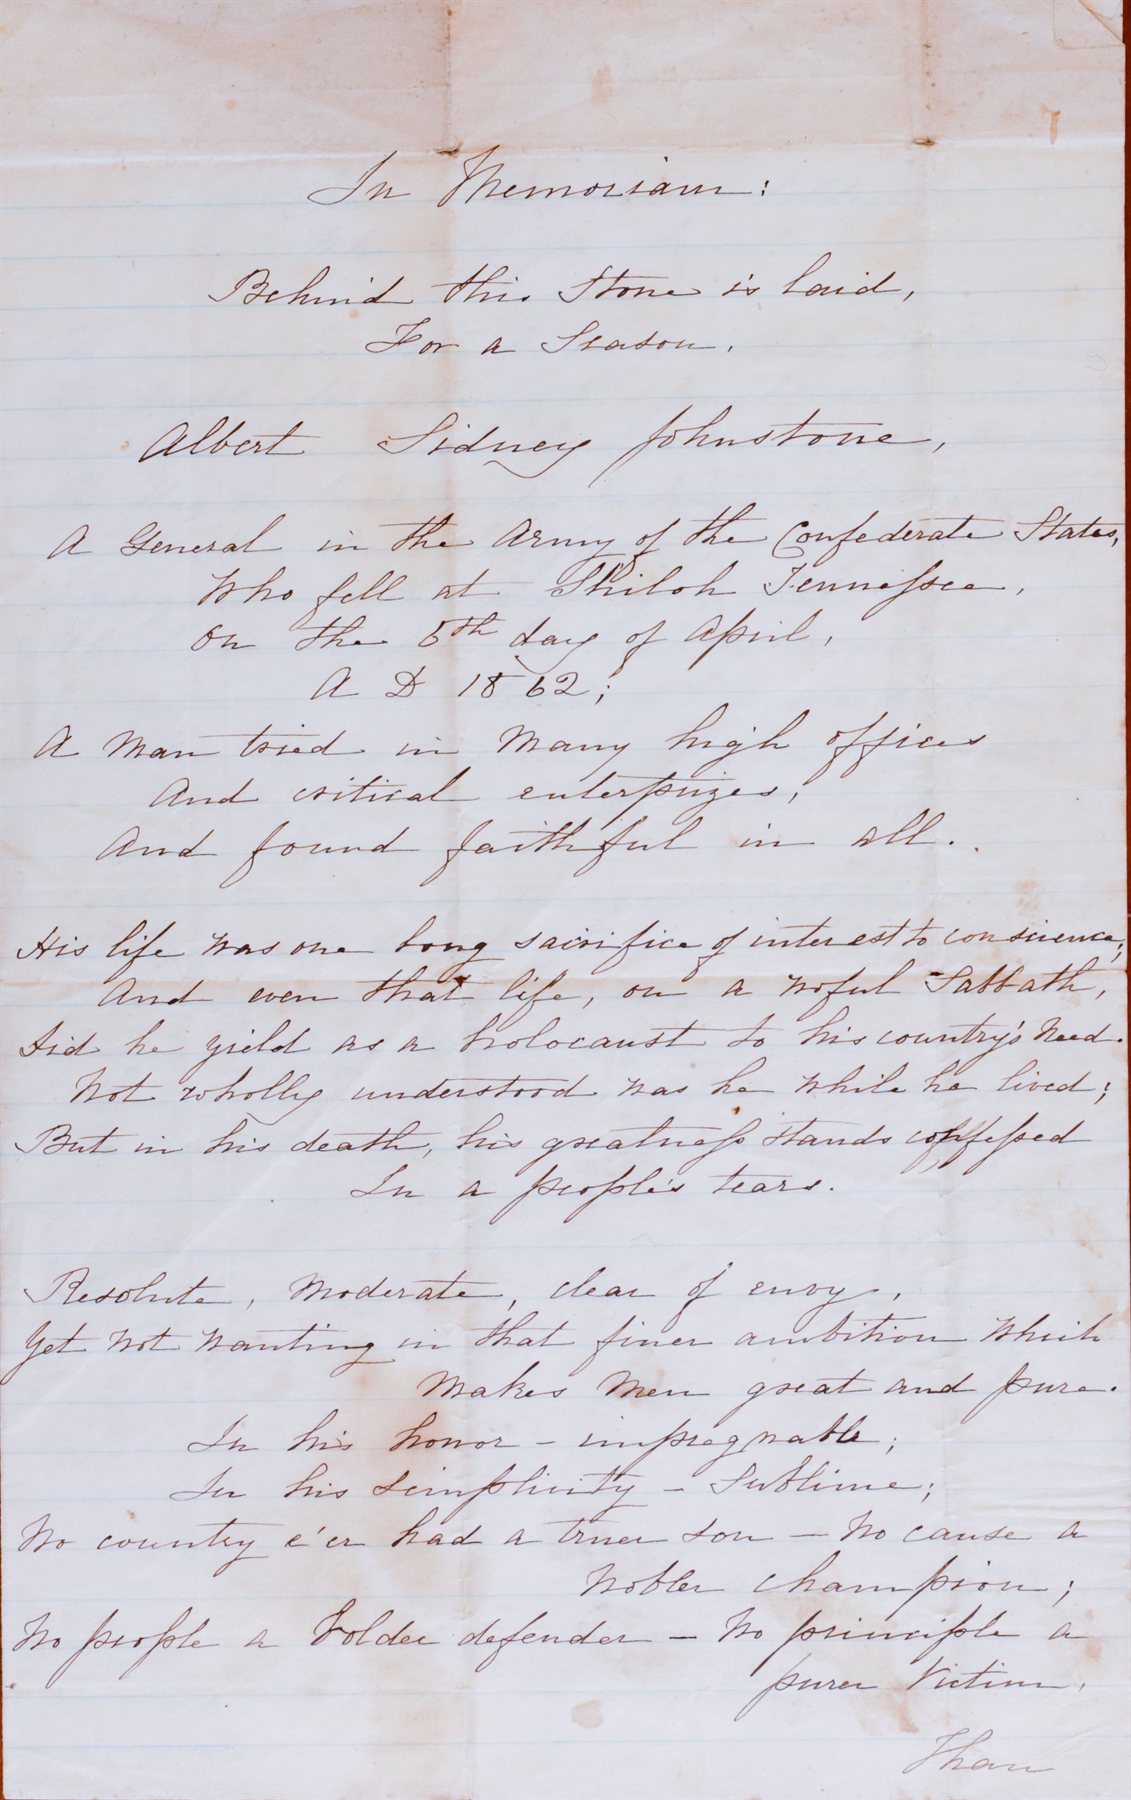 In Memoriam:
Behind this Stone is laid,
For a Season,
Albert Sidney Johnstone,
A General in the Army of the Confederate States,
Who fell at Shiloh Tennessee,
On the 6th day of April,
A D 1862;
A Man tried in Many high offices
And critical enterprizes,
And found faithful in all.
His life was one long sacrifice of interest to conscience;
And even that life, on a woful Sabbath,
Did he yield as a holocaust to his country's Need.
Not wholly understood was he while he lived;
But in his death, his greatness stands confessed
In a people's tears.
Resolute, Moderate, clear of envy,
Yet not wanting in that finer ambition which
Makes Men great and pure.
In his honor – impregnable;
In his simplicity – Sublime;
No country e'er had a truer son – No cause a
Nobler champion;
No people a bolder defender – No principle a
purer Victim,
Than